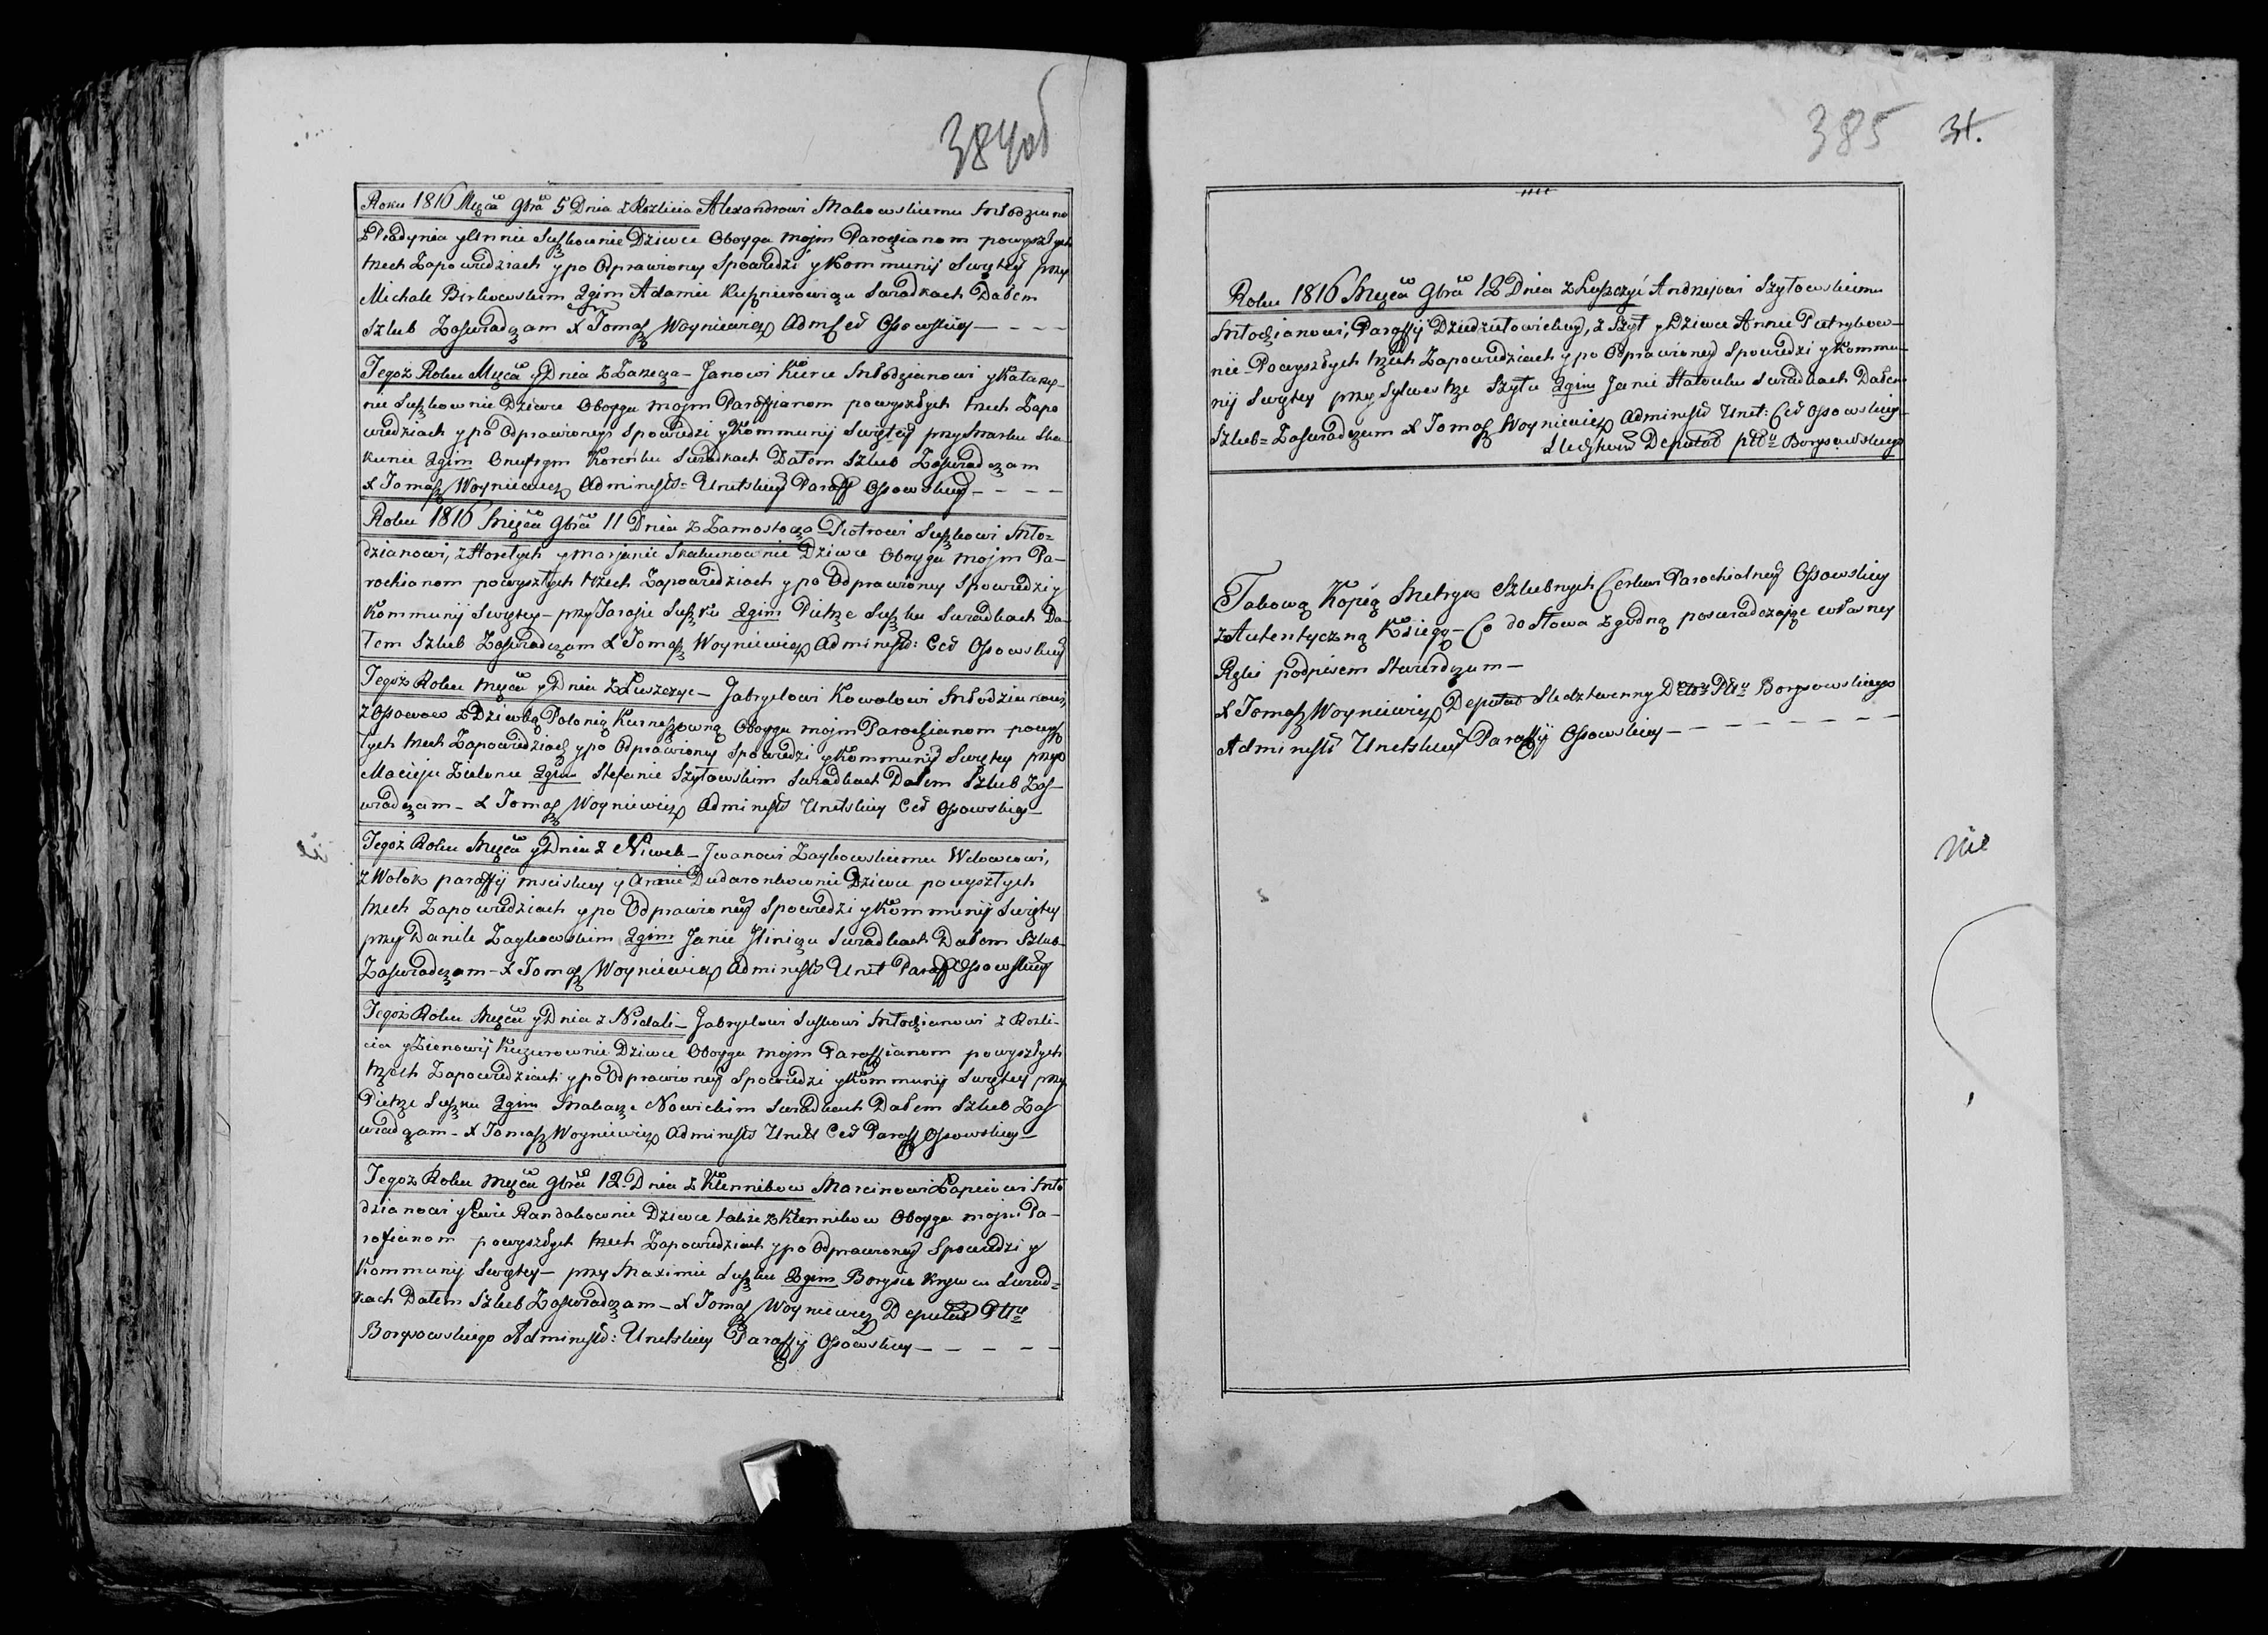 384 об
Roku 1816 Mscã 9brã 5 Dnia z Rozlicia Alexandrowi Makowskiemu Młodziano
y Annie Suszkownie Dziewce Oboygu moim Parochianom powyszłych
trzech Zapowiedziach y po Odprawioney Spowiedzi y Kommunij Swiętey przy
Michale Birkowskim 2gim Adamie Kusznierowiczu Swiadkach Dałem
Szlub Zaswiadczam X Tomasz Woyniewicz Adm Cer Osowskiey
Tegoż Roku Mscã y Dnia z Zarzecza - Janowi Kurce Młodzianowi y Katarzy-
nie Suszkownie Dziewce Oboygu moim Paraffianom powyszłych trzech Zapo
wiedziach y po Odprawioney Spowiedzi y Kommunij Swiętey przy Marku Ska-
kunie 2gim Onufrym Koreńku Swiadkach Dałem Szlub Zaswiadczam
X Tomasz Woyniewicz Administr: Unitskiey Paraff Osowskiey
Roku 1816 Miscã 9brã 11 Dnia z Zamostocza Piotrowi Suszkowi Mło-
dzianowi, y Marjanie Skakunownie Dziewce Oboygu moim Pa-
rochianom powyszłych trzech Zapowiedziach y po Odprawioney Spowiedzi y
Kommunij Swiętey - przy Jarosju Suszku 2gim Pietrze Suszku Swiadkach Da-
łem Szlub Zaswiadczam X Tomasz Woyniewicz Administr: Cer Osowskiey
Tegoż Roku Mscã y Dnia z Łuszczyc - Jabryelowi Kowalowi Młodzianowi,
z Osowow z Dziewką Polonią Kurneszowną Oboygu moim Parochianom powysz
łych trzech Zapowiedziach y po Odprawioney Spowiedzi y Kommunij Swiętey przy
Macieju Zielonu 2gim Stefanie Szytowskim Swiadkach Dałem Szlub Zas-
wiadczam - X Tomasz Woyniewicz Administr Unitskiey Cer Osowskiey
Tegoż Roku Mscã y Dnia z Niwek - Jwanowi Zaykowskiemu Wdowcowi,
z Wołok paraffij msciskiey y Annie Dudaronkownie Dziewce powyszłych
trzech Zapowiedziach y po Odprawioney Spowiedzi y Kommunij Swiętey
przy Danile Zaykowskim 2gim Janie Jliniczu Swiadkach Dałem Szlub-
Zaswiadczam - X Tomasz Woyniewicz Administr Unit Paraff Osowskiey
Tegoż Roku Mscã y Dnia z Nidali - Jabryelowi Suszkowi Młodzianowi z Rozli-
cia y Zienowij Kuzurownie Dziewce Oboygu moim Paraffianom powyszłych
trzech Zapowiedziach y po Odprawioney Spowiedzi y Kommunij Swiętey przy
Pietrze Suszku 2gim Makarze Nowickim Swiadkach Dałem Szlub Zas
wiadczam - X Tomasz Woyniewicz Administr Unit Cer Paraff Osowskiey
Tegoż Roku Mscã 9brã 12 Dnia z Klennikow Marcinowi Łapciowi Mło
dzianowi y Ewie Randakownie Dziewce także z Klennikow Oboygu moim Pa-
rofianom powyszłych trzech Zapowiedziach y po Odprawioney Spowiedzi y
Kommunij Swiętey - przy Maximie Suszku 2gim Borysie Krywcu Swiad-
kach Dałem Szlub Zaswiadczam - X Tomasz Woyniewicz Deputat Pttu
Borysowskiego Administr: Unitskiey Paraffij Osowskiey
385
31.
Roku 1816 Miscã 9brã 12 Dnia z Łuszczyc Andrzejowi Szytowskiemu
Młodzianowi, Paraffij Dziedziłowickiey, z Szyt y Dziewce Annie Pietrykow-
nie - Powyszłych trzech Zapowiedziach y po Odprawioney Spowiedzi y Kommu-
nij Swiętey przy Sylwestrze Szytu 2gim Janie Statoulu Swiadkach Dałem
Szlub = Zaswiadczam X Tomasz Woyniewicz Administr Unit: Cer Osowskiey
Sledztwen Deputat pttu Borysowskiego
Takową Kopią Metryk Szlubnych Cerkwi Parochialney Osowskiey
z Autentyczną Księgą - Co do słowa zgodną poswiadczając własney
Ręki podpisem stwierdzam -
X Tomasz Woyniewicz Deputat Sledztwenny Pttu Borysowskiego
Administr Unitskiey Paraffij Osowskiey